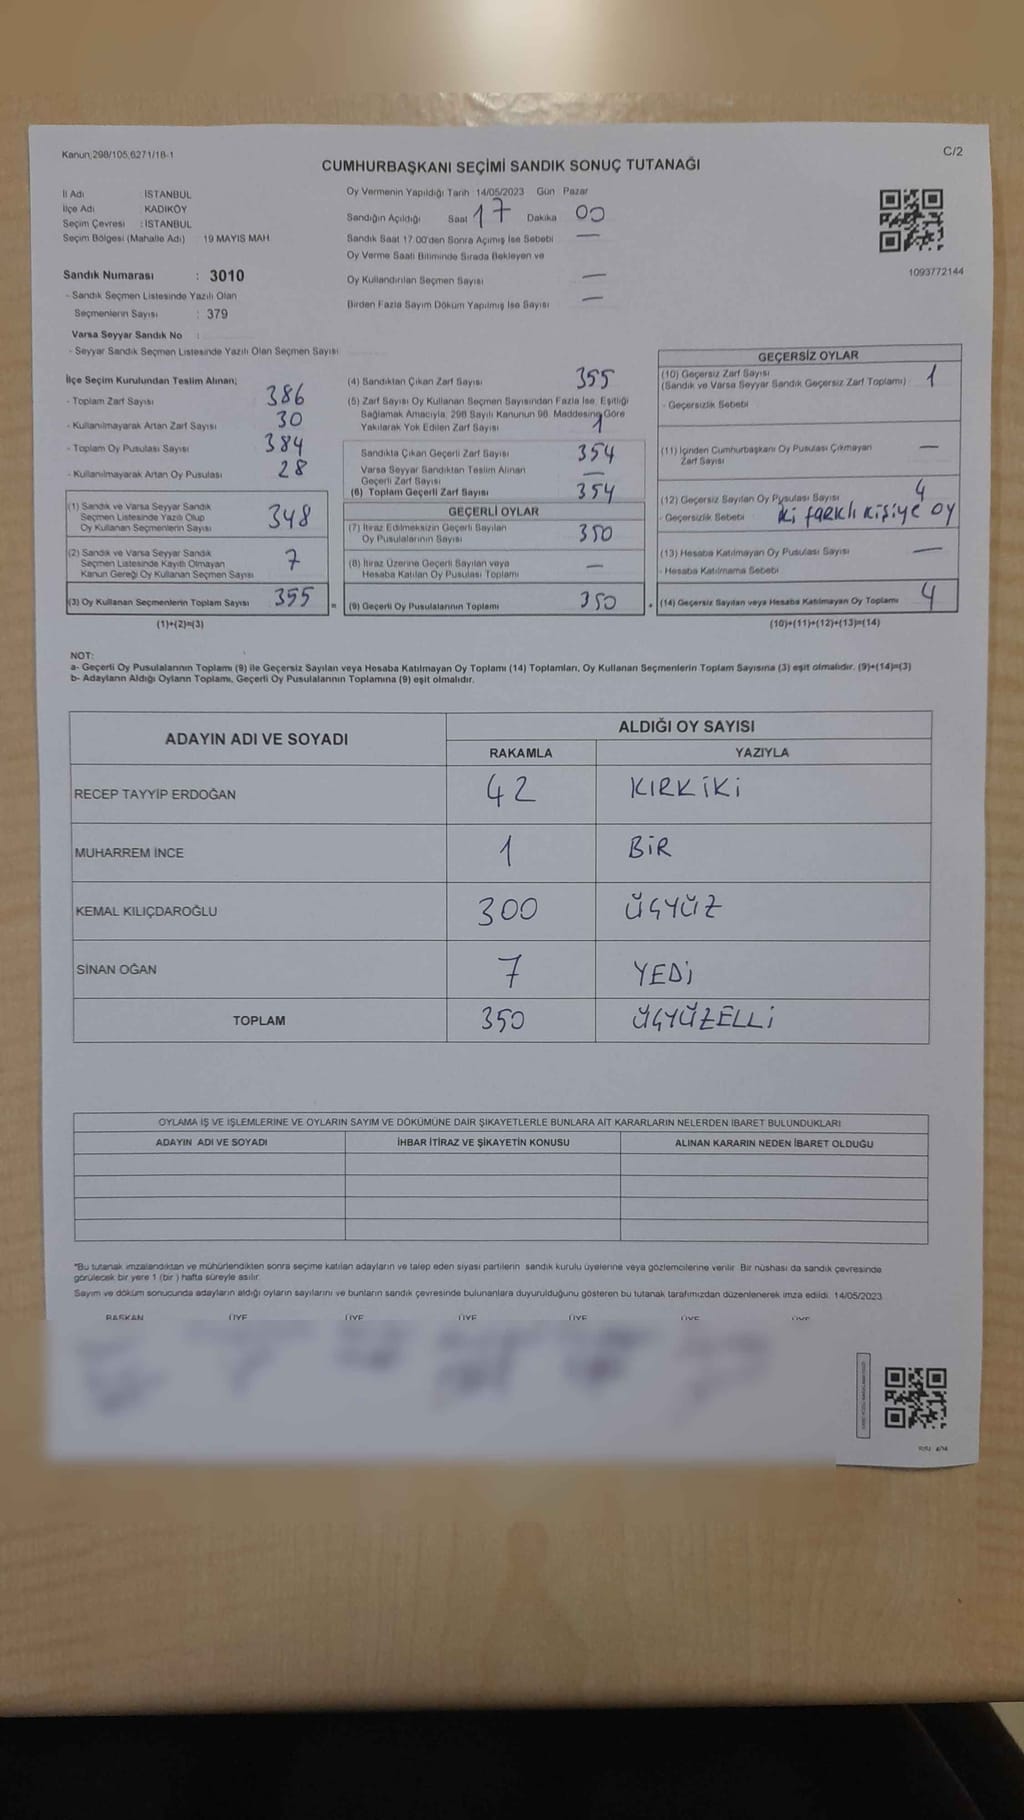 Kanun;298/105,6271/18-1
C/2
CUMHURBAŞKANI SEÇİMİ SANDIK SONUÇ TUTANAĞI
İl Adı İSTANBUL
İlçe Adı KADIKÖY
Seçim Çevresi : İSTANBUL
Seçim Bölgesi (Mahalle Adı) 19 MAYIS MAH
Sandık Numarası : 3010
- Sandık Seçmen Listesinde Yazılı Olan
Seçmenlerin Sayısı : 379
Varsa Seyyar Sandık No :
- Seyyar Sandık Seçmen Listesinde Yazılı Olan Seçmen Sayısı
Oy Vermenin Yapıldığı Tarih 14/05/2023 Gün Pazar
Sandığın Açıldığı Saat 17 Dakika 00
Sandık Saat 17:00'den Sonra Açımış İse Sebebi —
Oy Verme Saati Bitiminde Sırada Bekleyen ve
Oy Kullandırılan Seçmen Sayısı —
Birden Fazla Sayım Döküm Yapılmış İse Sayısı —
1093772144
İlçe Seçim Kurulundan Teslim Alınan;
- Toplam Zarf Sayısı 386
- Kullanılmayarak Artan Zarf Sayısı 30
- Toplam Oy Pusulası Sayısı 384
- Kullanılmayarak Artan Oy Pusulası 28
(1) Sandık ve Varsa Seyyar Sandık
Seçmen Listesinde Yazılı Olup
Oy Kullanan Seçmenlerin Sayısı 348
(2) Sandık ve Varsa Seyyar Sandık
Seçmen Listesinde Kayıtlı Olmayan
Kanun Gereği Oy Kullanan Seçmen Sayısı 7
(3) Oy Kullanan Seçmenlerin Toplam Sayısı 355 =
(1)+(2)=(3)
(4) Sandıktan Çıkan Zarf Sayısı 355
(5) Zarf Sayısı Oy Kullanan Seçmen Sayısından Fazla İse, Eşitliği
Sağlamak Amacıyla, 298 Sayılı Kanunun 98. Maddesine Göre
Yakılarak Yok Edilen Zarf Sayısı 1
Sandıkta Çıkan Geçerli Zarf Sayısı 354
Varsa Seyyar Sandıktan Teslim Alınan
Geçerli Zarf Sayısı —
(6) Toplam Geçerli Zarf Sayısı 354
GEÇERLİ OYLAR
(7) İtiraz Edilmeksizin Geçerli Sayılan
Oy Pusulalarının Sayısı 350
(8) İtiraz Üzerine Geçerli Sayılan veya
Hesaba Katılan Oy Pusulası Toplamı —
(9) Geçerli Oy Pusulalarının Toplamı 350 +
GEÇERSİZ OYLAR
(10) Geçersiz Zarf Sayısı
(Sandık ve Varsa Seyyar Sandık Geçersiz Zarf Toplamı) 1
- Geçersizlik Sebebi
(11) İçinden Cumhurbaşkanı Oy Pusulası Çıkmayan
Zarf Sayısı —
(12) Geçersiz Sayılan Oy Pusulası Sayısı 4
- Geçersizlik Sebebi iki farklı kişiye oy
(13) Hesaba Katılmayan Oy Pusulası Sayısı —
- Hesaba Katılmama Sebebi
(14) Geçersiz Sayılan veya Hesaba Katılmayan Oy Toplamı 4
(10)+(11)+(12)+(13)=(14)
NOT:
a- Geçerli Oy Pusulalarının Toplamı (9) ile Geçersiz Sayılan veya Hesaba Katılmayan Oy Toplamı (14) Toplamları, Oy Kullanan Seçmenlerin Toplam Sayısına (3) eşit olmalıdır. (9)+(14)=(3)
b- Adayların Aldığı Oyların Toplamı, Geçerli Oy Pusulalarının Toplamına (9) eşit olmalıdır.
ADAYIN ADI VE SOYADI ALDIĞI OY SAYISI
RAKAMLA YAZIYLA
RECEP TAYYİP ERDOĞAN 42 KIRKİKİ
MUHARREM İNCE 1 BİR
KEMAL KILIÇDAROĞLU 300 ÜÇYÜZ
SİNAN OĞAN 7 YEDİ
TOPLAM 350 ÜÇYÜZELLİ
OYLAMA İŞ VE İŞLEMLERİNE VE OYLARIN SAYIM VE DÖKÜMÜNE DAİR ŞİKAYETLERLE BUNLARA AİT KARARLARIN NELERDEN İBARET BULUNDUKLARI
ADAYIN ADI VE SOYADI İHBAR İTİRAZ VE ŞİKAYETİN KONUSU ALINAN KARARIN NEDEN İBARET OLDUĞU
*Bu tutanak imzalandıktan ve mühürlendikten sonra seçime katılan adayların ve talep eden siyasi partilerin sandık kurulu üyelerine veya gözlemcilerine verilir. Bir nüshası da sandık çevresinde
görülecek bir yere 1 (bir ) hafta süreyle asılır.
Sayım ve döküm sonucunda adayların aldığı oyların sayılarını ve bunların sandık çevresinde bulunanlara duyurulduğunu gösteren bu tutanak tarafımızdan düzenlenerek imza edildi. 14/05/2023
BAŞKAN ÜYE ÜYE ÜYE ÜYE ÜYE ÜYE